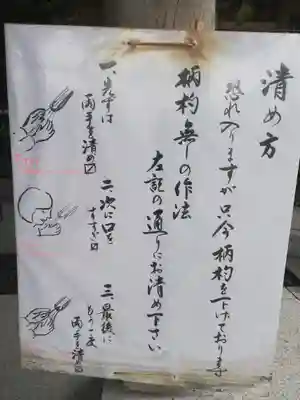 清め方
恐れ入りますが只今柄杓を下げております
柄杓無しの作法
左記の通りにお清め下さい
一、先ずは
両手を清め〼
二、次に口を
すすぎ〼
三、最後に
もう一度
両手を清〼